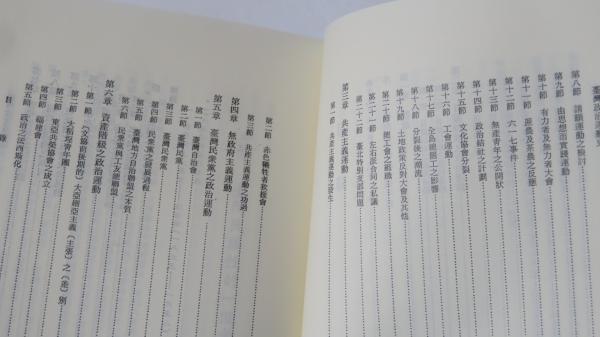 臺灣政治運動
第八節 請願運動之檢討
第九節 由思想而實踐運動
第十節 有力者及無力者大會
第十一節 蔗農及茶農之反應
第十二節 六一七事件
第十三節 無產青年之公開狀
第十四節 政治結社之計劃
第十五節 文化協會分裂
第十六節 工會運動
第十七節 全島總罷工之影響
第十八節 分裂後之潮流
第十九節 土地政策反對大會及其他
第二十節 總工會之組織
第二十一節 左右派合同之私議
第二十二節 臺北特別支部問題
第三章 共產主義運動
第一節 共產主義運動之發生
第二節 赤色犧牲者救援會
第三節 共產主義運動之功過
第四章 無政府主義運動
第五章 臺灣民眾黨之政治運動
第一節 臺灣自治會
第二節 臺灣民黨
第三節 臺灣民眾黨
第四節 民眾黨之發展過程
第五節 臺灣地方自治聯盟之本質
第六節 民眾黨與工友總聯盟
第六章 資產階級之政治運動
第一節 (文協前後期的)大亞細亞主義《主張》之《走》別
第二節 大稻埕青年團
第三節 東亞共榮協會之成立
第四節 福建會
第五節 政府之法西斯化
目 錄